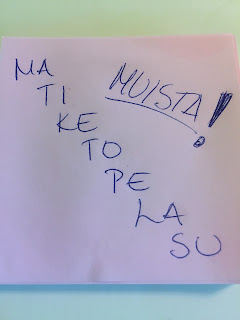 MA
MUISTA!
TI
KE
TO
PE
LA
SU